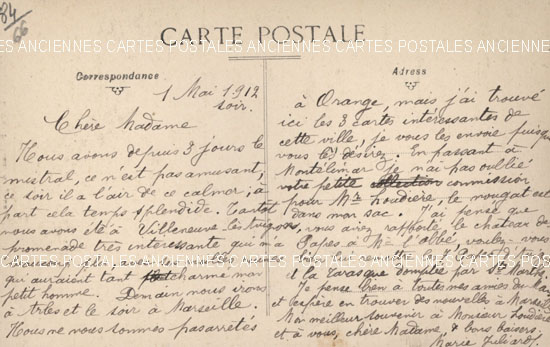 84
66
CARTE POSTALE
CARTES POSTALES ANCIENNES CARTES POSTALES ANCIENNES CARTES POSTALES
Correspondance
1 Mai 1912
soir.
Chère Madame
Nous avons depuis 3 jours le
mistral, ce n'est pas amusant,
ce soir il a l'air de ce calmer; à
part cela temps splendide. Tantôt
nous avons été à Villeneuve-les-Avignons,
promenade très intéressante qui m'a
qui auraient tant charmé mon
petit homme. Demain nous irons
à Arles et le soir à Marseille.
Nous ne nous sommes pas arrêtés
Adress
à Orange, mais j'ai trouvé
ici les 3 cartes intéressantes de
cette ville, je vous les envoie puisque
vous les désirez. En passant à
Montélimar je n'ai pas oublié
votre petite collection commission
pour Mr Loudière, le nougat est
dans mon sac. J'ai pensé que
vous aviez rapporté le château des
Papes à Mr l'abbé, voulez-vous
et la Tarasque domptée par Ste Marthe
Je pense bien à toutes mes amies du
et espère en trouver des nouvelles à Marseille
Mon meilleur souvenir à Monsieur Loudière
et à vous, chère Madame, bons baisers.
Marie